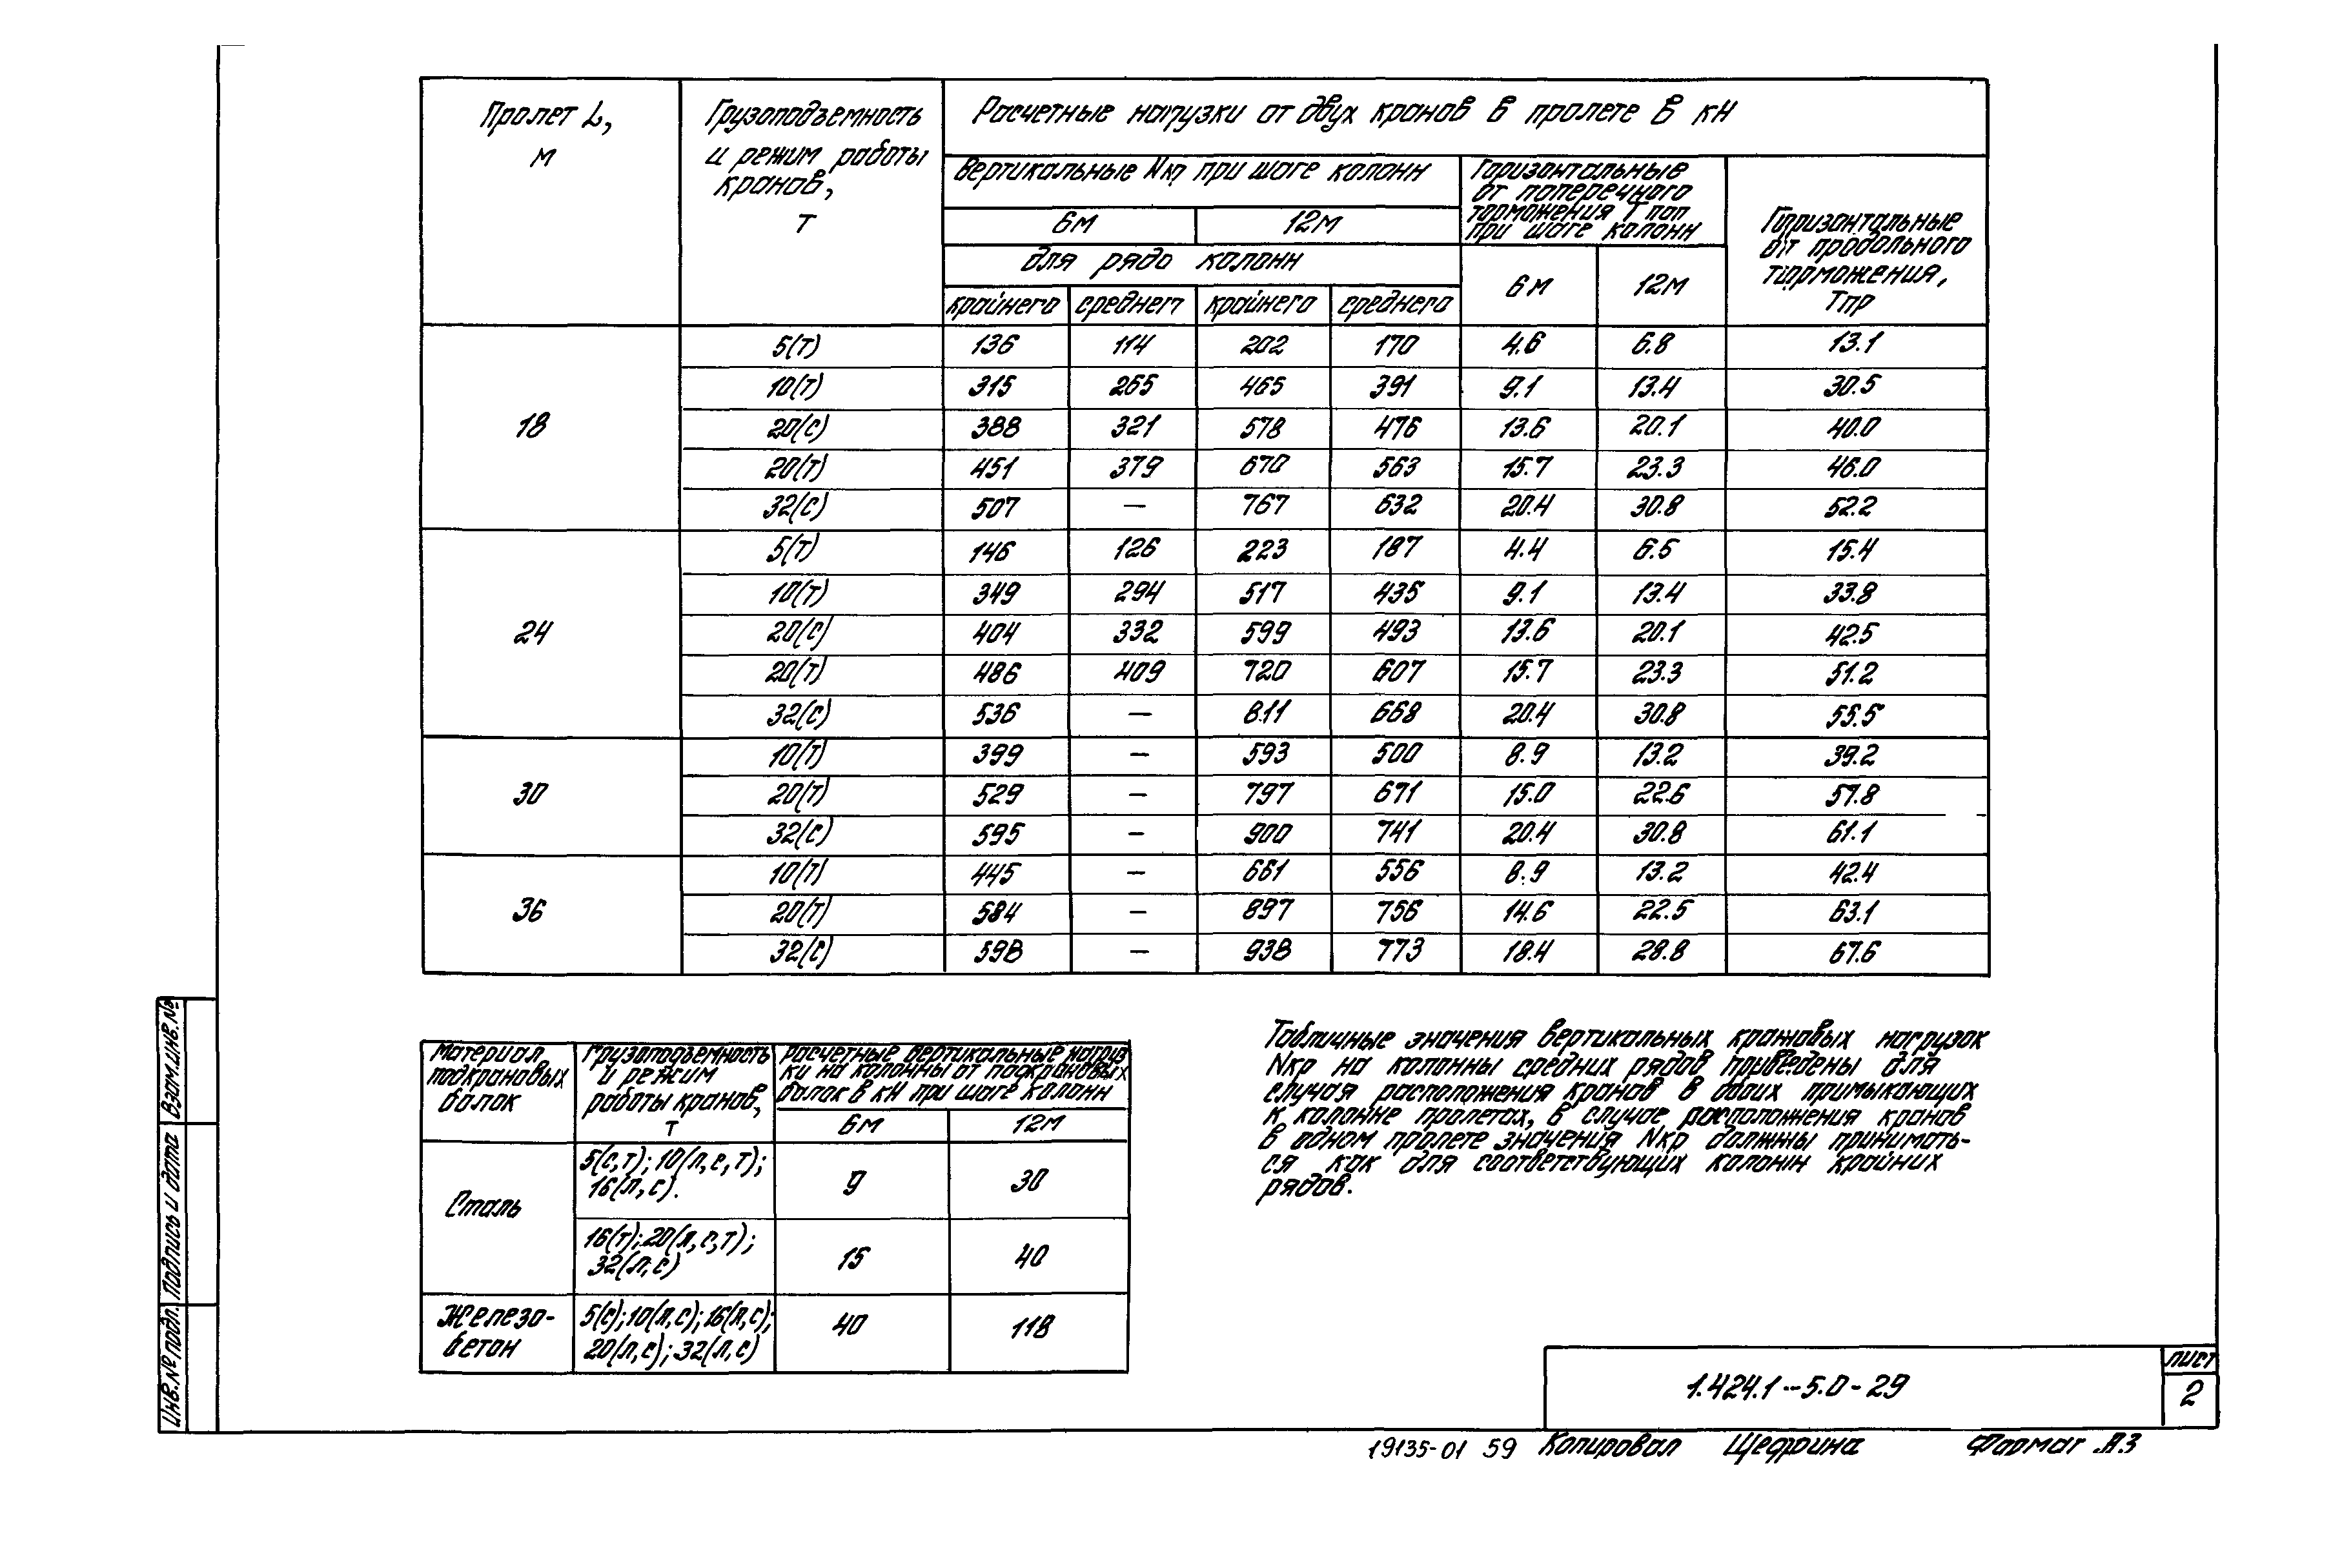 Пролет L, м
Грузоподъемность и режим работы кранов, т
Расчетные нагрузки от двух кранов в пролете в кН
Вертикальные Nкр при шаге колонн
Горизонтальные от поперечного торможения Т поп при шаге колонн
Горизонтальные от продольного торможения, Тпр
6м 12м
для ряда колонн
6м 12м
крайнего среднего крайнего среднего
18
5(т) 136 114 202 170 4.6 6.8 13.1
10(т) 315 265 465 391 9.1 13.4 30.5
20(с) 388 321 578 476 13.6 20.1 40.0
20(т) 451 379 670 563 15.7 23.3 46.0
32(с) 507 — 767 632 20.4 30.8 52.2
24
5(т) 146 126 223 187 4.4 6.5 15.4
10(т) 349 294 517 435 9.1 13.4 33.8
20(с) 404 332 599 493 13.6 20.1 42.5
20(т) 486 409 720 607 15.7 23.3 51.2
32(с) 536 — 811 668 20.4 30.8 55.5
30
10(т) 399 — 593 500 8.9 13.2 39.2
20(т) 529 — 797 671 15.0 22.6 57.8
32(с) 595 — 900 741 20.4 30.8 61.1
36
10(т) 445 — 661 556 8.9 13.2 42.4
20(т) 584 — 897 756 14.6 22.5 63.1
32(с) 598 — 938 773 18.4 28.8 67.6
Материал подкрановых балок
Грузоподъемность и режим работы кранов, т
Расчетные вертикальные нагруз-
ки на колонны от подкрановых
балок в кН при шаге колонн
6м 12м
Сталь
5(с,т); 10(л,с,т);
16(л,с). 9 30
16(т); 20(л,с,т);
32(л,с) 15 40
Железо-
бетон
5(с); 10(л,с); 16(л,с);
20(л,с); 32(л,с) 40 118
Табличные значения вертикальных крановых нагрузок
Nкр на колонны средних рядов приведены для
случая расположения кранов в обоих примыкающих
к колонне пролетах, в случае расположения кранов
в одном пролете значения Nкр должны принимать-
ся как для соответствующих колонн крайних
рядов.
Взам.инв.№
Подпись и дата
Инв.№ подл.
1.424.1-5.0-29
лист
2
19135-01 59 Копировал Щедрина Формат А3